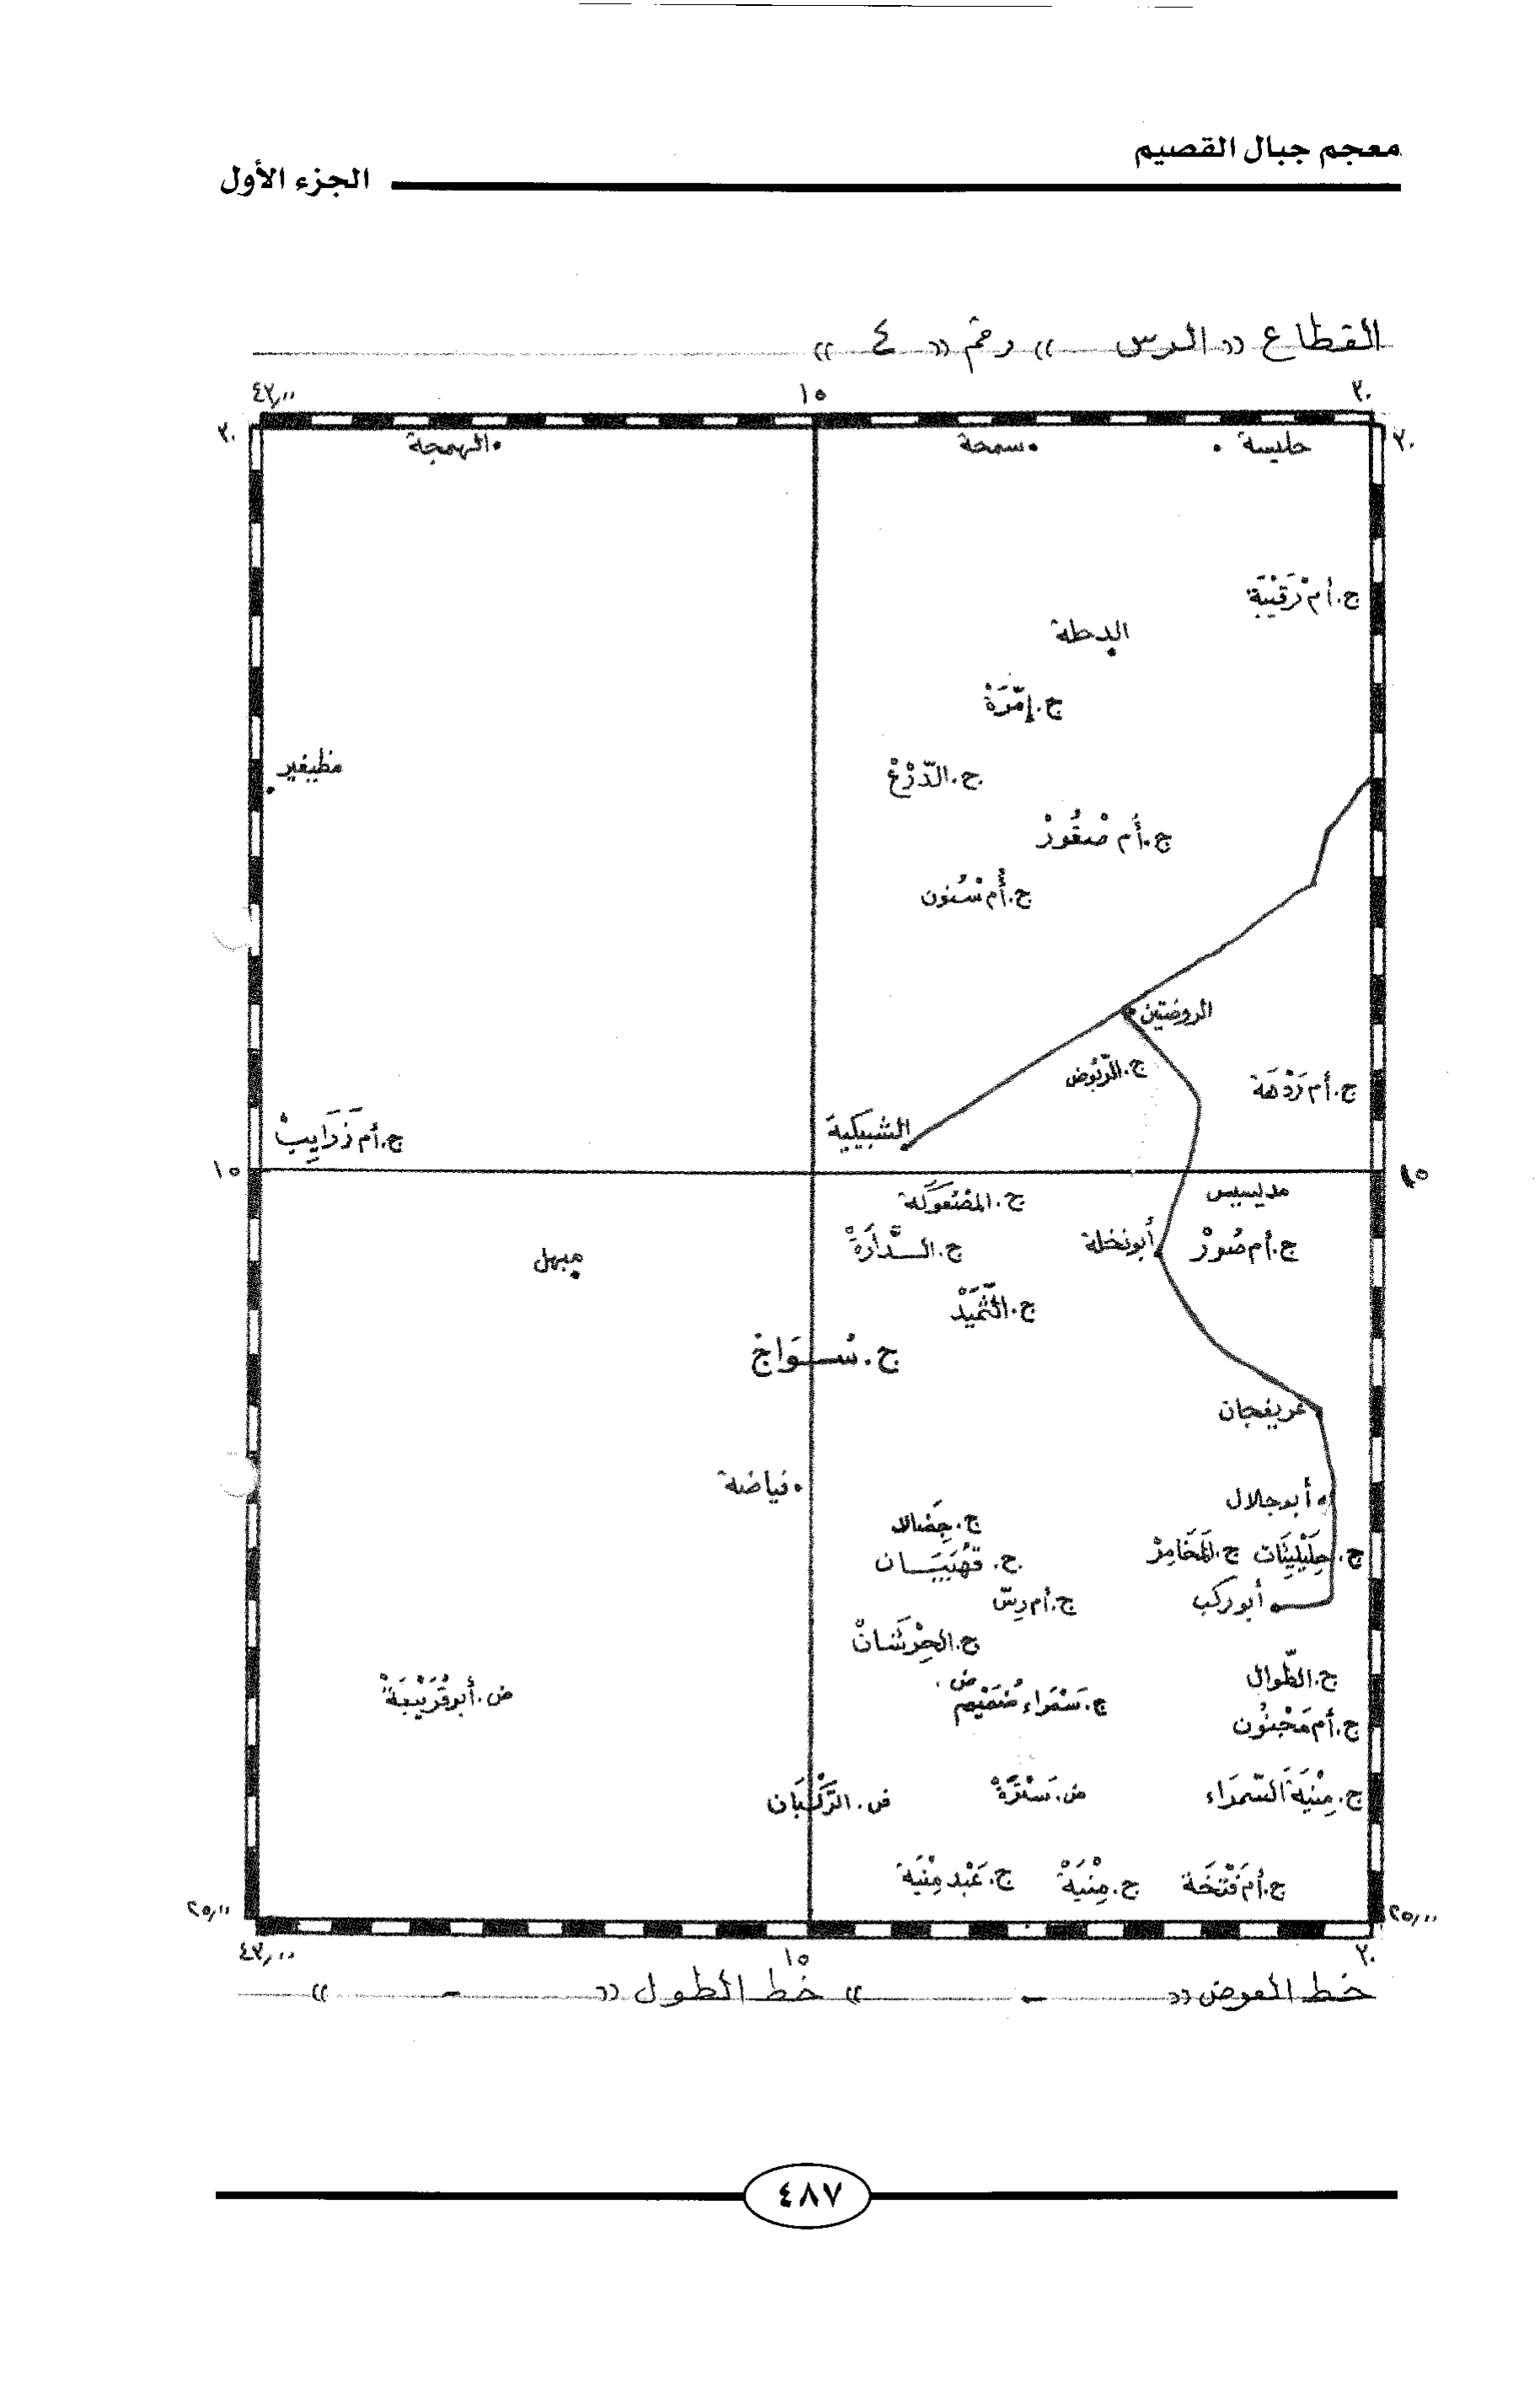 معجم جبال القصيم
الجزء الأول
القطاع « الرس » رقم « ٤ »
٤٣,٠٠ ١٥ ٣٠
٣٠ ٣٠
الهمجة سمحة حليسة
ج.أم رَقَيْبَة
الدحلة
ج.إمَّرَةْ
مظيفير
ج.الدّرْعْ
ج.أم صْقُورْ
ج.أم سْنُون
الروضتين
ج.الرّبُوض
ج.أم رَدْهَة
الشبيكية
ج.أم زَرَايِبْ
١٥ ١٥
ج.المْصَعْوكَة
مدليبيس
ج.الـدَّارَةْ
أبونخلة
ج.أم صُورْ
مبهل
ج.الثّمَيْدْ
ج.سُـوَاجْ
غريفجان
فياضة
أبوجلال
ج.جِضَالا
ج.حِلَيْلِيَّات
ج.المَخَامِرْ
ج.قَهَبِيَـان
أبوركب
ج.أم رِسّ
ج.الحِرْشَانْ
ج.الطّوال
ض.أبوقْرَيْبِعَةْ
ج.سَمْرَاء ضْمَيْم
ج.أم مَجْنُون
ض.الرّكْبَان
ض.سَتْرَةْ
ج.مِنْيَة السّمرَاء
ج.عَبْد مِنْيَة
ج.مِنْيَةْ
ج.أم فَتْخَة
٢٥,٠٠ ٢٥,٠٠
٤٣,٠٠ ١٥ ٣٠
خط العرض « - » خط الطول « - »
٤٨٧